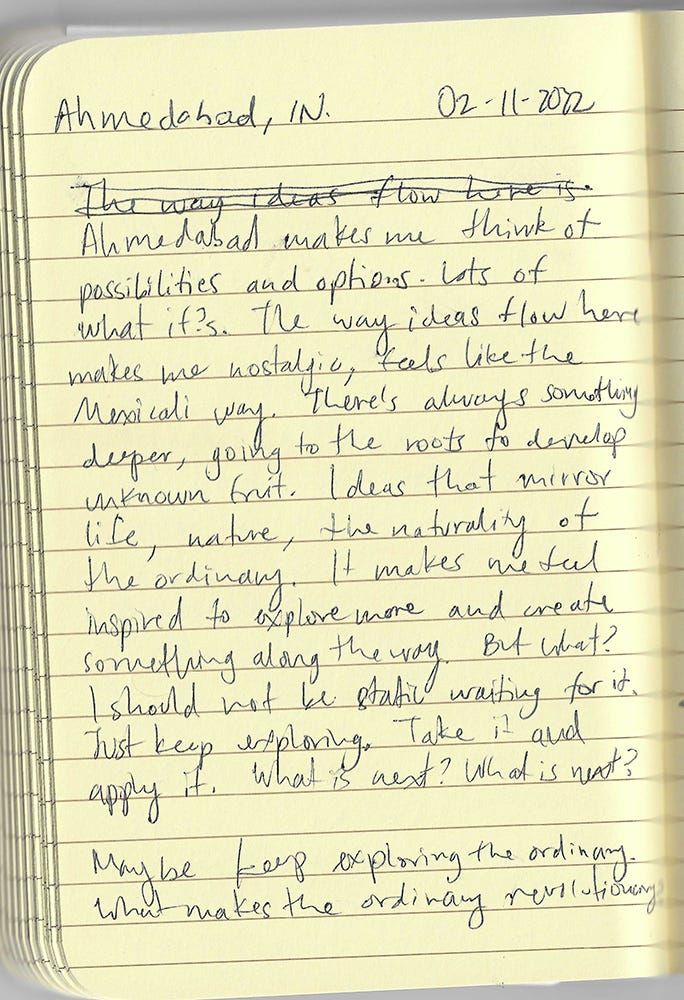 Ahmedabad, IN. 02-11-2022
The way ideas flow here is.
Ahmedabad makes me think of
possibilities and options. Lots of
what if?s. The way ideas flow here
makes me nostalgic, feels like the
Mexicali way. There's always something
deeper, going to the roots to develop
unknown fruit. Ideas that mirror
life, nature, the naturality of
the ordinary. It makes me feel
inspired to explore more and create
something along the way. But what?
I should not be static waiting for it.
Just keep exploring. Take it and
apply it. What is next? What is next?
Maybe keep exploring the ordinary.
What makes the ordinary revolutionary?